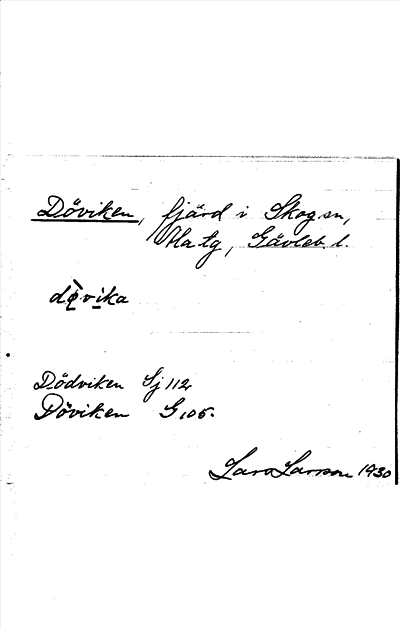 Döviken, fjärd i Skog sn,
Ha tg, Gävleb. l.
dø̀vika
Dödviken Sj 112
Döviken G 105.
Lars Larsson 1930